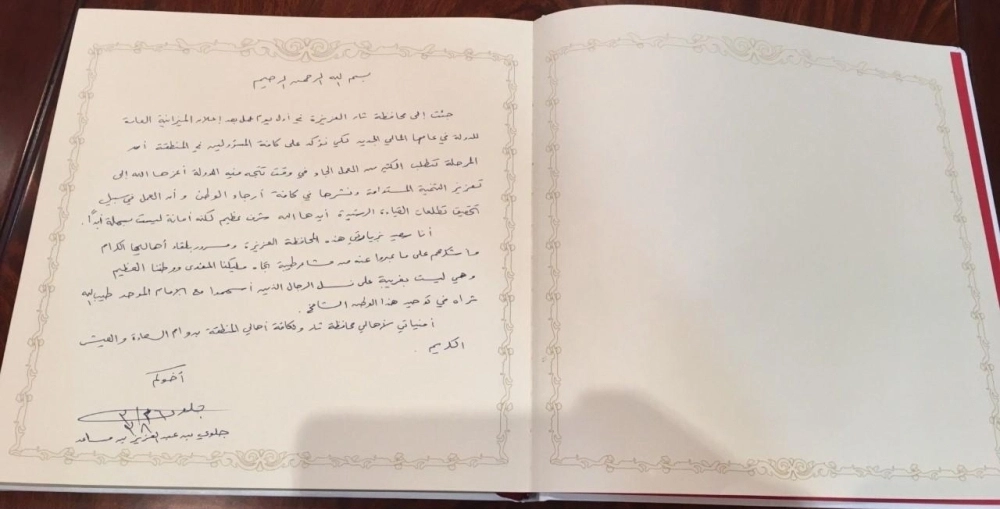 بسم الله الرحمن الرحيم
جئت إلى محافظة ثار العزيزة في أول يوم عمل بعد إعلان الميزانية العامة
للدولة في عامها المالي الجديد لكي نؤكد على كافة المسؤولين في المنطقة أن
المرحلة تتطلب الكثير من العمل الجاد في وقت تتجه فيه الدولة أعزها الله إلى
تعزيز التنمية المستدامة ونشرها في كافة أرجاء الوطن وأن العمل في سبيل
تحقيق تطلعات القيادة الرشيدة أيدها الله شرف عظيم لكنه أمانة ليست سهلة أبداً.
أنا سعيد بزيارتي هذه المحافظة العزيزة ومسرور بلقاء أهاليها الكرام
وأشكرهم على ما عبروا عنه من مشاعر طيبة تجاه مليكنا المفدى ووطننا العظيم
وهي ليست بغريبة على نسل الرجال الذين أسهموا مع الإمام الموحد طيب الله
ثراه في توحيد هذا الوطن الشامخ.
أمنياتي لأهالي محافظة ثار ولكافة أهالي المنطقة بدوام السعادة والعيش
الكريم.
أخوكم
جلوي بن عبدالعزيز بن مساعد